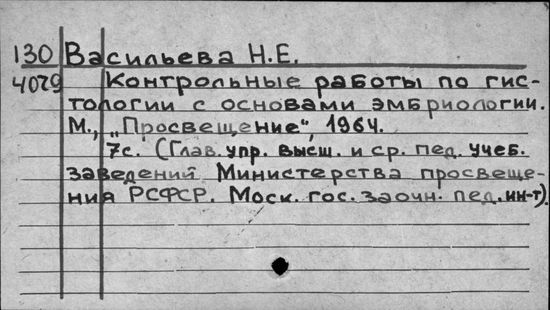 130 Васильева Н.Е.
4029 Контрольные работы по гис-
тологии с основами эмбриологии.
М., „Просвещение“, 1964.
7с. (Глав. упр. высш. и ср. пед. учеб.
заведений Министерства просвеще-
ния РСФСР. Моск. гос. заочн. пед. ин-т).